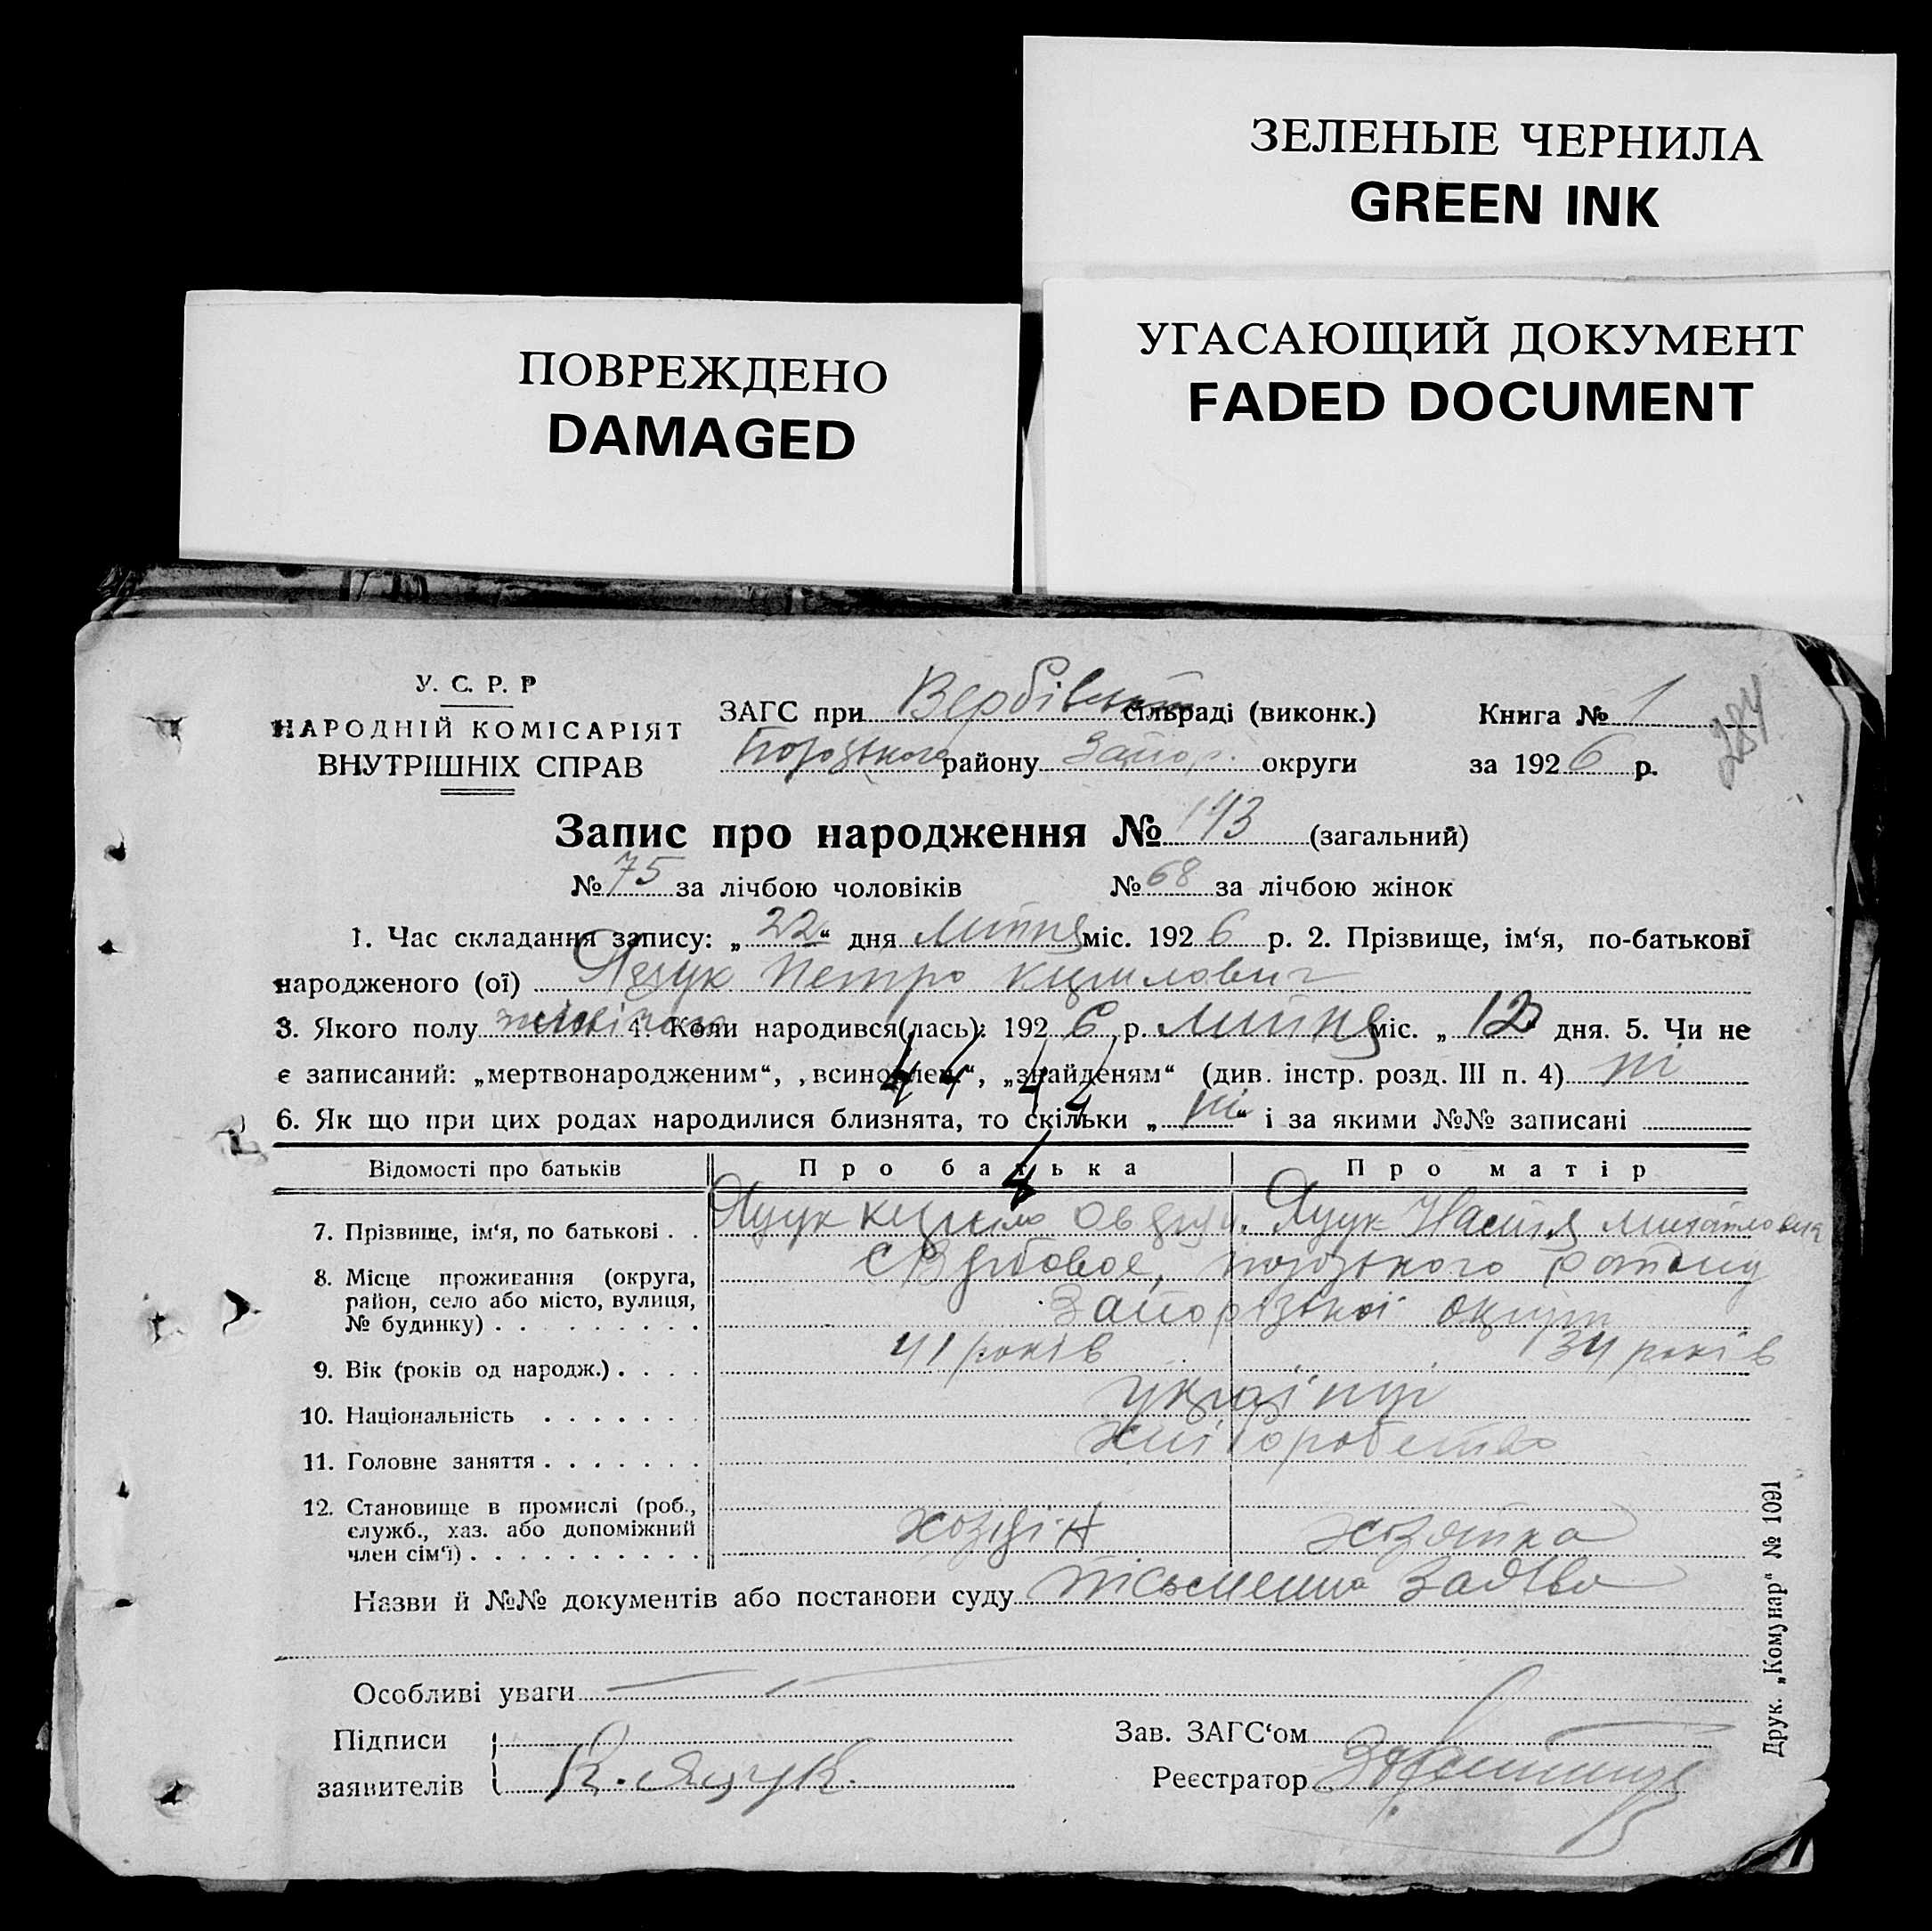 ЗЕЛЕНЫЕ ЧЕРНИЛА
GREEN INK
УГАСАЮЩИЙ ДОКУМЕНТ
FADED DOCUMENT
ПОВРЕЖДЕНО
DAMAGED
У. С. Р. Р
НАРОДНІЙ КОМІСАРІЯТ
ВНУТРІШНІХ СПРАВ
ЗАГС при Вербівській сільраді (виконк.)
району Запор. округи
Книга № 1
за 1926 р.
284
Запис про народження № 143 (загальний)
№ 75 за лічбою чоловіків № 68 за лічбою жінок
1. Час складання запису: „22“ дня Липня міс. 1926 р. 2. Прізвище, ім‘я, по-батькові
народженого (ої) Яцук Петро Кирилович
3. Якого полу 4. Коли народився(лась): 1926 р. Липня міс. „12“ дня. 5. Чи не
є записаний: „мертвонародженим“, „всиновлен“, „знайденям“ (див. інстр. розд. III п. 4) ні
6. Як що при цих родах народилися близнята, то скільки „ні“ і за якими №№ записані
Відомості про батьків Про батька Про матір
7. Прізвище, ім‘я, по батькові . . Яцук Кирило Яцук Настя Михайловна
8. Місце проживання (округа, район, село або місто, вулиця, № будинку) . . . . . . . . . с Вербовое, району
Запорізької округи
9. Вік (років од народж.) . . . . 41 років 34 років
10. Національність . . . . . . українці
11. Головне заняття . . . . . . . хліборобство
12. Становище в промислі (роб., служб., хаз. або допоміжний член сім‘ї) . . . . . . . . . . хозяін хозяйка
Назви й №№ документів або постанови суду письменна заява
Особливі уваги —
Підписи
заявителів К. Яцук.
Зав. ЗАГС‘ом
Реєстратор
Друк. „Комунар“ № 1091